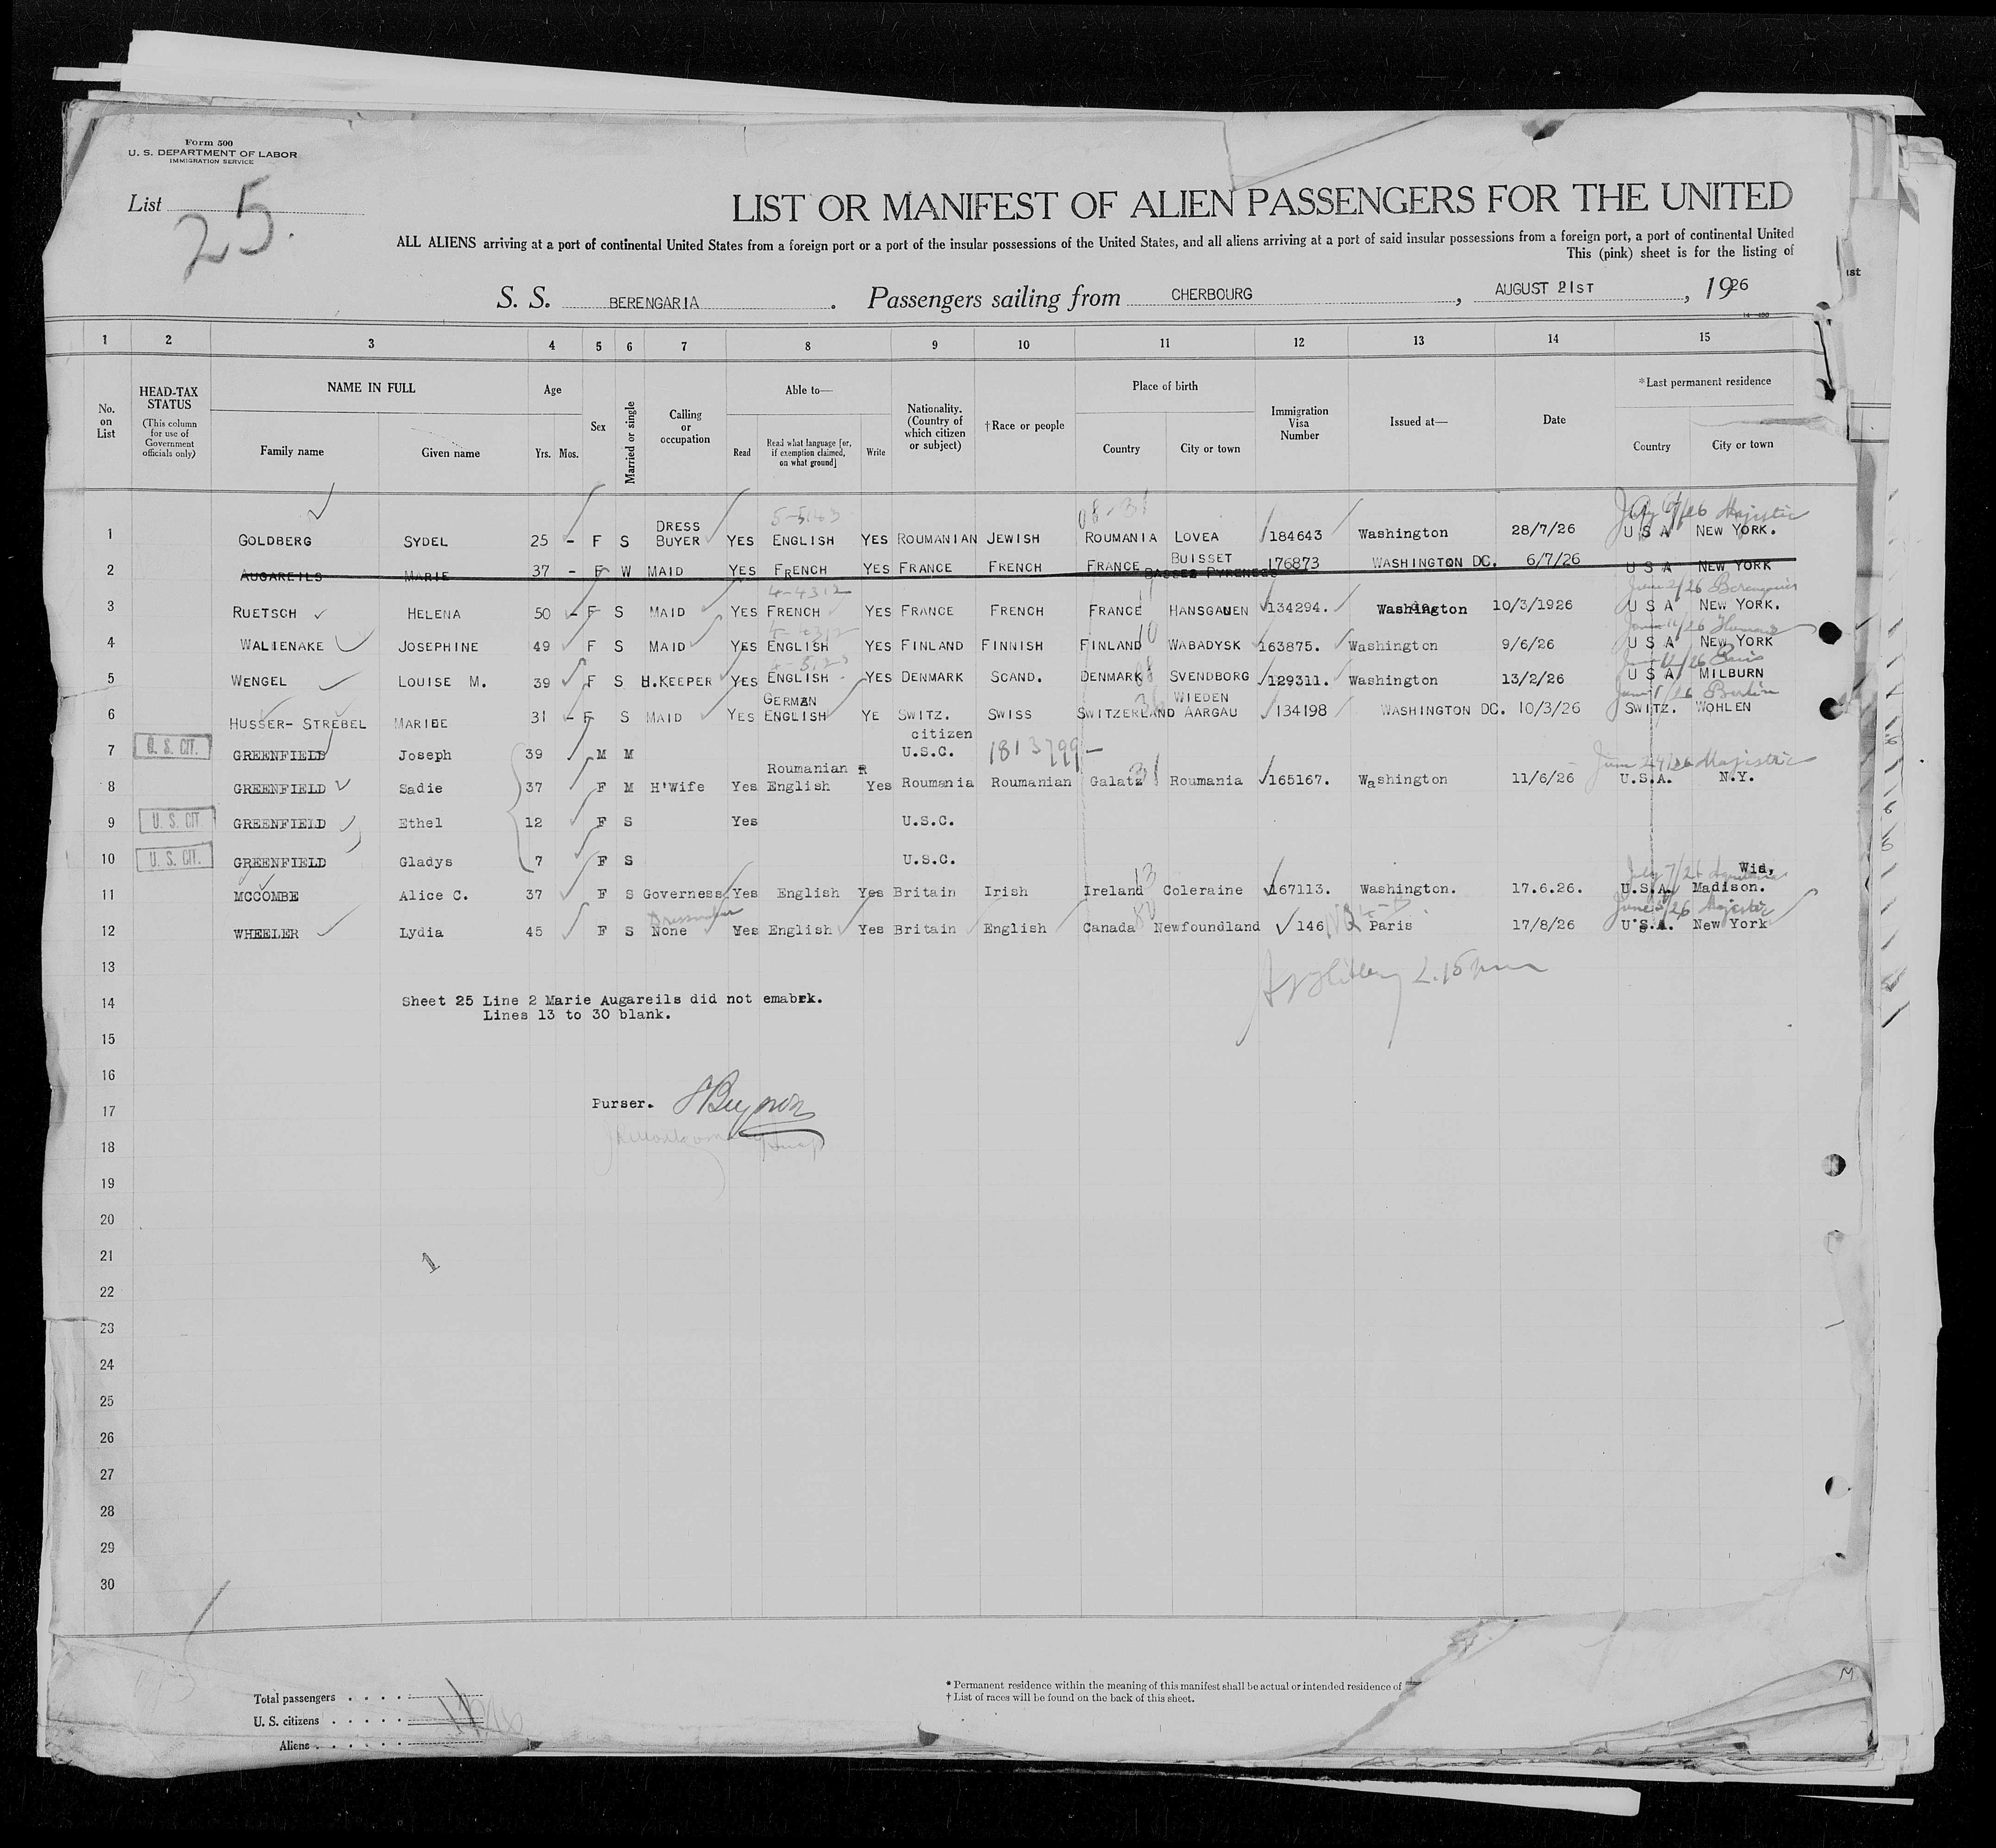 Form 500
U. S. DEPARTMENT OF LABOR
IMMIGRATION SERVICE
List 25.
LIST OR MANIFEST OF ALIEN PASSENGERS FOR THE UNITED
ALL ALIENS arriving at a port of continental United States from a foreign port or a port of the insular possessions of the United States, and all aliens arriving at a port of said insular possessions from a foreign port, a port of continental United
This (pink) sheet is for the listing of
S. S. BERENGARIA. Passengers sailing from CHERBOURG, AUGUST 21ST, 1926
1 2 3 4 5 6 7 8 9 10 11 12 13 14 15
No. on List
HEAD-TAX STATUS (This column for use of Government officials only)
NAME IN FULL
Family name Given name
Age
Yrs. Mos.
Sex
Married or single
Calling or occupation
Able to—
Read
Read what language [or, if exemption claimed, on what ground]
Write
Nationality. (Country of which citizen or subject)
†Race or people
Place of birth
Country City or town
Immigration Visa Number
Issued at—
Date
*Last permanent residence
Country City or town
July 6/26 Majestic
1 GOLDBERG SYDEL 25 - F S DRESS BUYER YES ENGLISH YES ROUMANIAN JEWISH ROUMANIA LOVEA 184643 Washington 28/7/26 U S A NEW YORK.
2 AUGAREILS MARIE 37 - F W MAID YES FRENCH YES FRANCE FRENCH FRANCE BUISSET BASSES PYRENEES 176873 WASHINGTON DC. 6/7/26 U S A NEW YORK
4-4312
3 RUETSCH HELENA 50 - F S MAID YES FRENCH YES FRANCE FRENCH FRANCE HANSGAUEN 134294. Washington 10/3/1926 U S A NEW YORK.
4 WALIENAKE JOSEPHINE 49 F S MAID YES ENGLISH YES FINLAND FINNISH FINLAND WABADYSK 163875. Washington 9/6/26 U S A NEW YORK
5 WENGEL LOUISE M. 39 F S H.KEEPER YES ENGLISH YES DENMARK SCAND. DENMARK SVENDBORG 129311. Washington 13/2/26 U S A MILBURN
6 HUSSER- STREBEL MARIBE 31 - F S MAID YES GERMAN ENGLISH YE SWITZ. SWISS SWITZERLAND WIEDEN AARGAU 134198 WASHINGTON DC. 10/3/26 SWITZ. WOHLEN
7 U. S. CIT. GREENFIELD Joseph 39 M M citizen U.S.C. 1813799-
June 24/26 Majestic
8 GREENFIELD Sadie 37 F M H'Wife Yes Roumanian R English Yes Roumania Roumanian Galatz Roumania 165167. Washington 11/6/26 U.S.A. N.Y.
9 U. S. CIT. GREENFIELD Ethel 12 F S Yes U.S.C.
10 U. S. CIT. GREENFIELD Gladys 7 F S U.S.C.
11 MCCOMBE Alice C. 37 F S Governess Yes English Yes Britain Irish Ireland Coleraine 167113. Washington. 17.6.26. U.S.A. Wis, Madison.
12 WHEELER Lydia 45 F S Dressmaker None Yes English Yes Britain English Canada Newfoundland 146 Paris 17/8/26 U.S.A. New York
13
14 Sheet 25 Line 2 Marie Augareils did not emabrk.
Lines 13 to 30 blank.
15
16
17 Purser.
18
19
20
21
22
23
24
25
26
27
28
29
30
Total passengers
U. S. citizens
Aliens
* Permanent residence within the meaning of this manifest shall be actual or intended residence of
† List of races will be found on the back of this sheet.